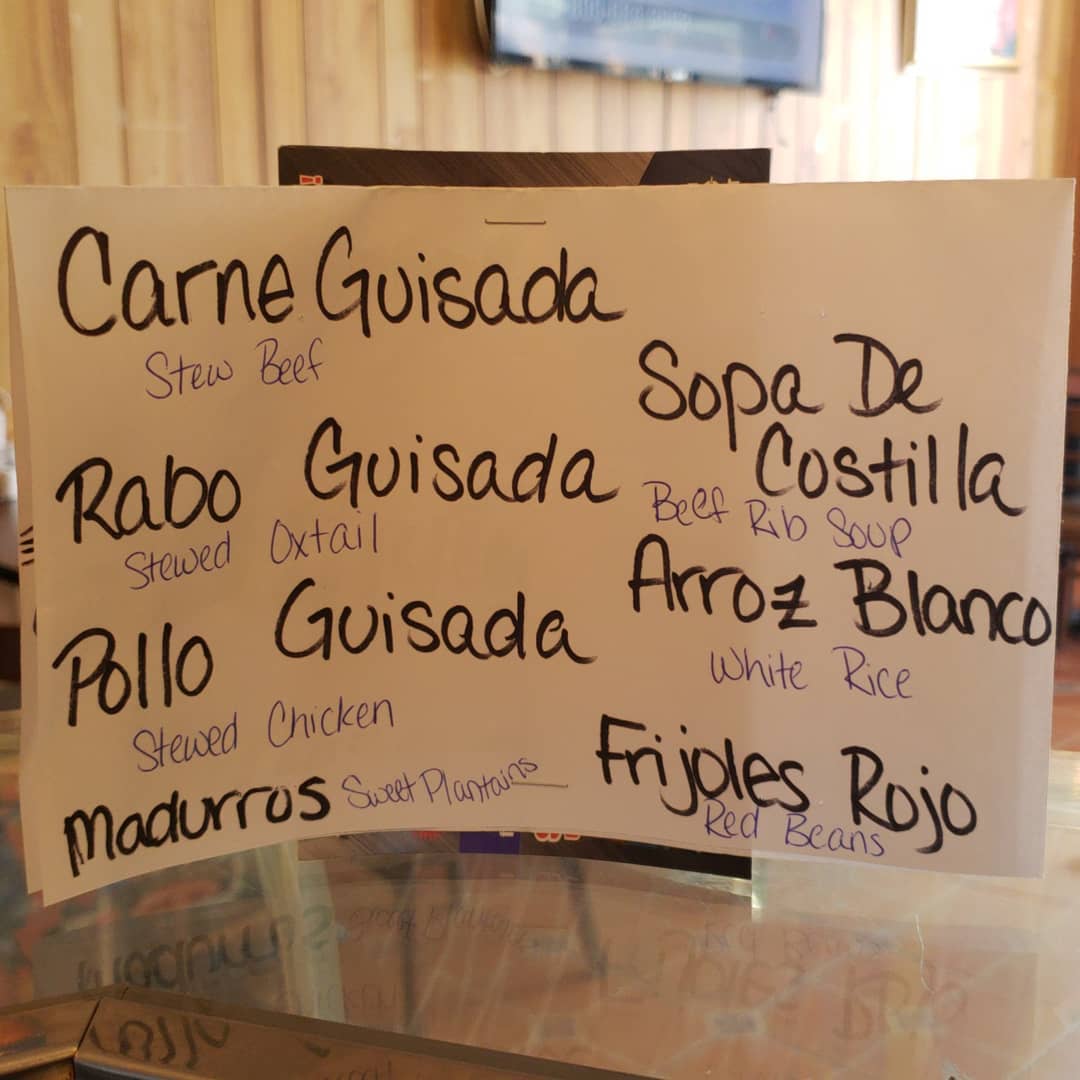 Carne Guisada
Stew Beef
Rabo Guisada
Stewed Oxtail
Pollo Guisada
Stewed Chicken
Madurros Sweet Plantains
Sopa De
Costilla
Beef Rib Soup
Arroz Blanco
White Rice
Frijoles Rojo
Red Beans